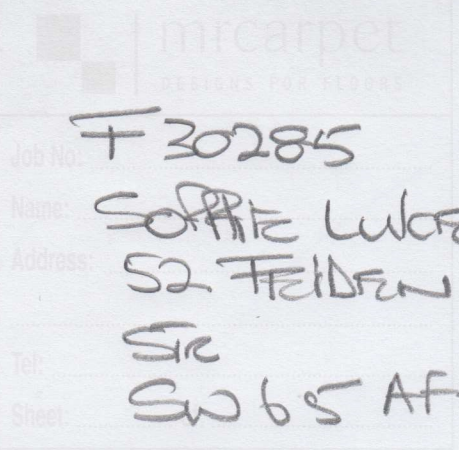 mrcarpet
DESIGNS FOR FLOORS
Job No: F 30285
Name: SOPPHIE LUKE
Address: 52 FEIDEN
STR
Tel:
Sheet: SW6 5 AF